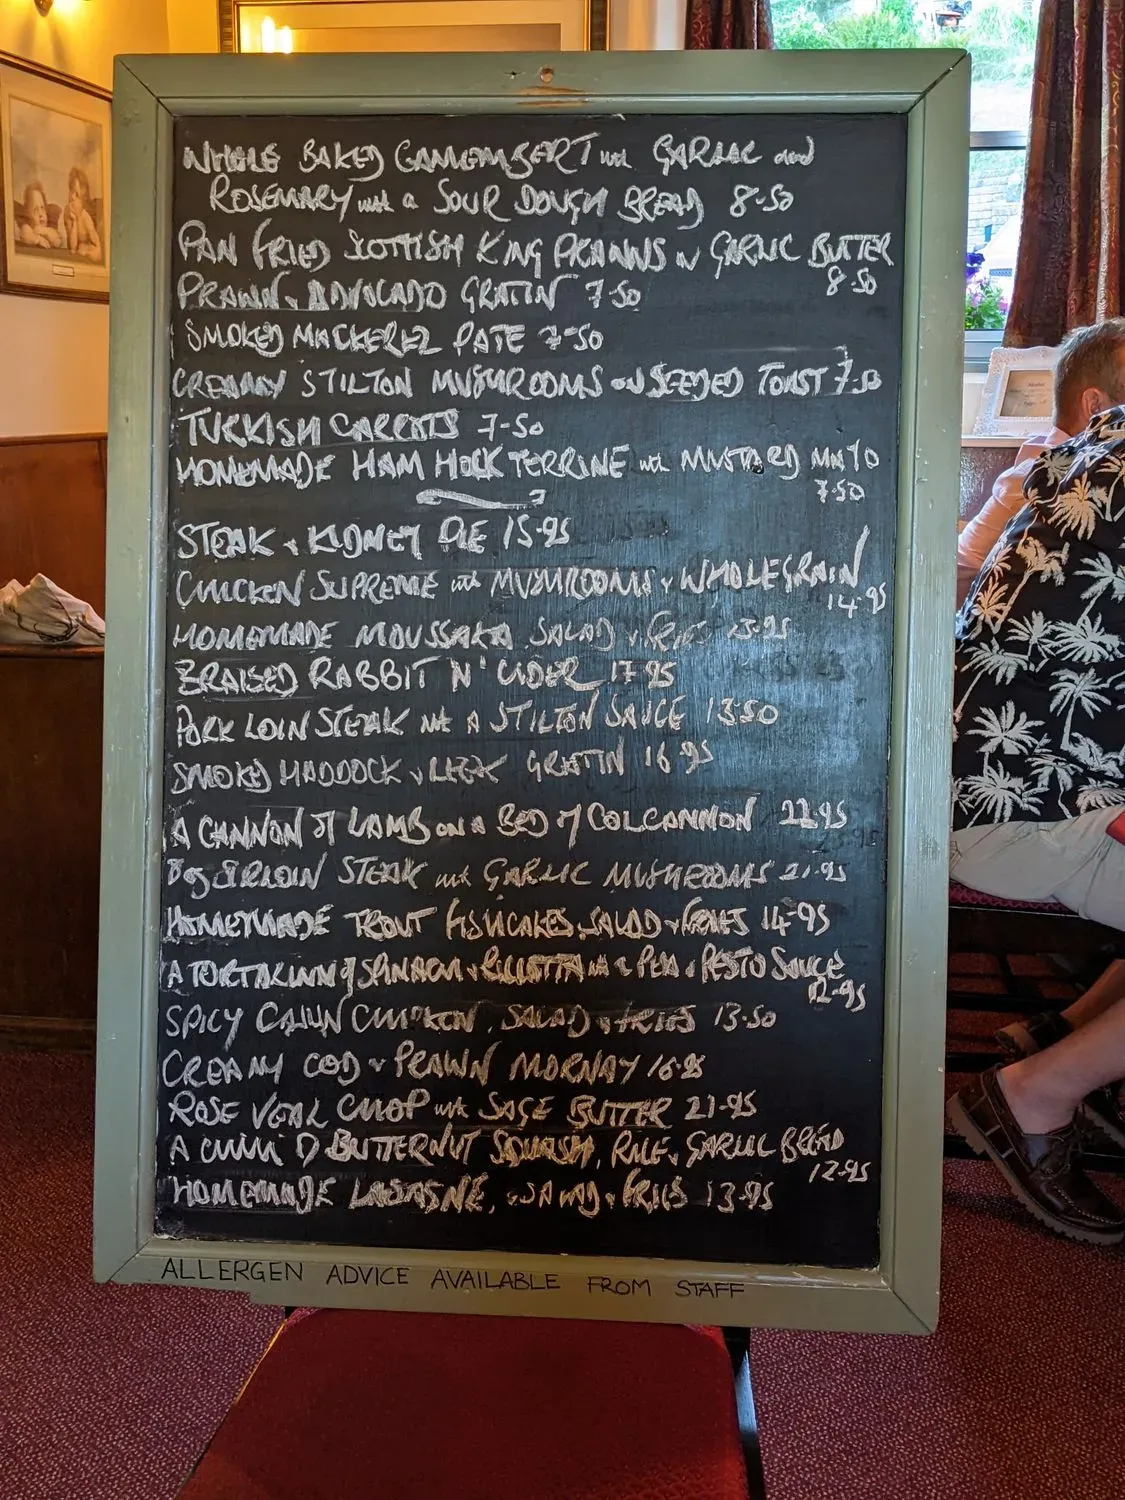 WHOLE BAKED CAMEMBERT with GARLIC and
ROSEMARY with a SOUR DOUGH BREAD 8-50
PAN FRIED SCOTTISH KING PRAWNS IN GARLIC BUTTER
8-50
PRAWN & ADVOCADO GRATIN 7-50
SMOKED MACKEREL PATE 7-50
CREAMY STILTON MUSHROOMS ON SEEDED TOAST 7-50
TURKISH CARROTS 7-50
HOMEMADE HAM HOCK TERRINE with MUSTARD MAYO
7-50
STEAK & KIDNEY PIE 15-95
CHICKEN SUPREME with MUSHROOMS & WHOLEGRAIN
14-95
HOMEMADE MOUSSAKA, SALAD & FRIES 13-95
BRAISED RABBIT N' CIDER 17-95
PORK LOIN STEAK with A STILTON SAUCE 13-50
SMOKED HADDOCK & LEEK GRATIN 16-95
A CANNON OF LAMB ON A BED OF COLCANNON 22-95
8oz SIRLOIN STEAK with GARLIC MUSHROOMS 21-95
HOMEMADE TROUT FISHCAKES, SALAD & FRIES 14-95
A TORTALINNI of SPINACH & RICCOTTA in a PEA & PESTO SAUCE
12-95
SPICY CAJUN CHICKEN, SALAD & FRIES 13-50
CREAMY COD & PRAWN MORNAY 16-95
ROSE VEAL CHOP with SAGE BUTTER 21-95
A CHILLI OF BUTTERNUT SQUASH, RICE, GARLIC BREAD
12-95
HOMEMADE LASAGNE, SALAD & FRIES 13-95
ALLERGEN ADVICE AVAILABLE FROM STAFF